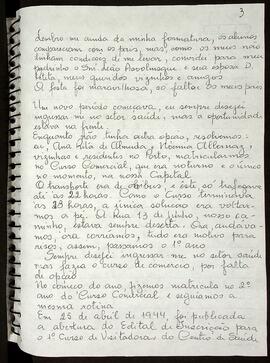 3
dentro me ainda de minha formatura, os alunos
compareceram com os pais, mas, como os meus não
tinham condições de me levar, convidei para meu
padrinho o Sr. João Apostinque e sua esposa D.
Zélita, meus queridos vizinhos e amigos
A festa foi maravilhosa, só faltou os meus pais
Um novo período começava, eu sempre desejei
ingressar no setor saúde, mas a oportunidade
estava na frente.
Enquanto não tinha outra opção, resolvemos:
eu, Ana Rita de Almeida, Noêmia
vizinhas e residentes no forte, matricularmos
no Curso Comercial, que era noturno e o único
no momento, na nossa Capital
O transporte era de ônibus, e este, só trafegava
até as 22 horas. Como o Curso terminava
às 23 horas, a única solução era voltar-
mos a pé. A Rua 13 de junho, nosso ca-
minho, estava sempre deserta. Ora andáva-
mos, ora corríamos, tudo era motivo para
risos, assim, passamos o 1º ano
Sempre desejei ingressar-me no setor saúde
mas fazia o curso de comércio, por falta
de opção
No começo do ano, fizemos matrícula no 2º
ano do Curso Comercial e seguíamos a
mesma rotina
Em 25 de abril de 1944, foi publicada
a abertura do Edital de inscrição para
o 1º Curso de Visitadoras do Centro de Saúde